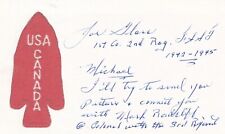 USA
CANADA
Joe Glass
1st Co. 2nd Reg. FSSF
1942-1945
Michael
I'll try to send you
Pictures & connect you
with Mark
@ Colonel with the 3rd